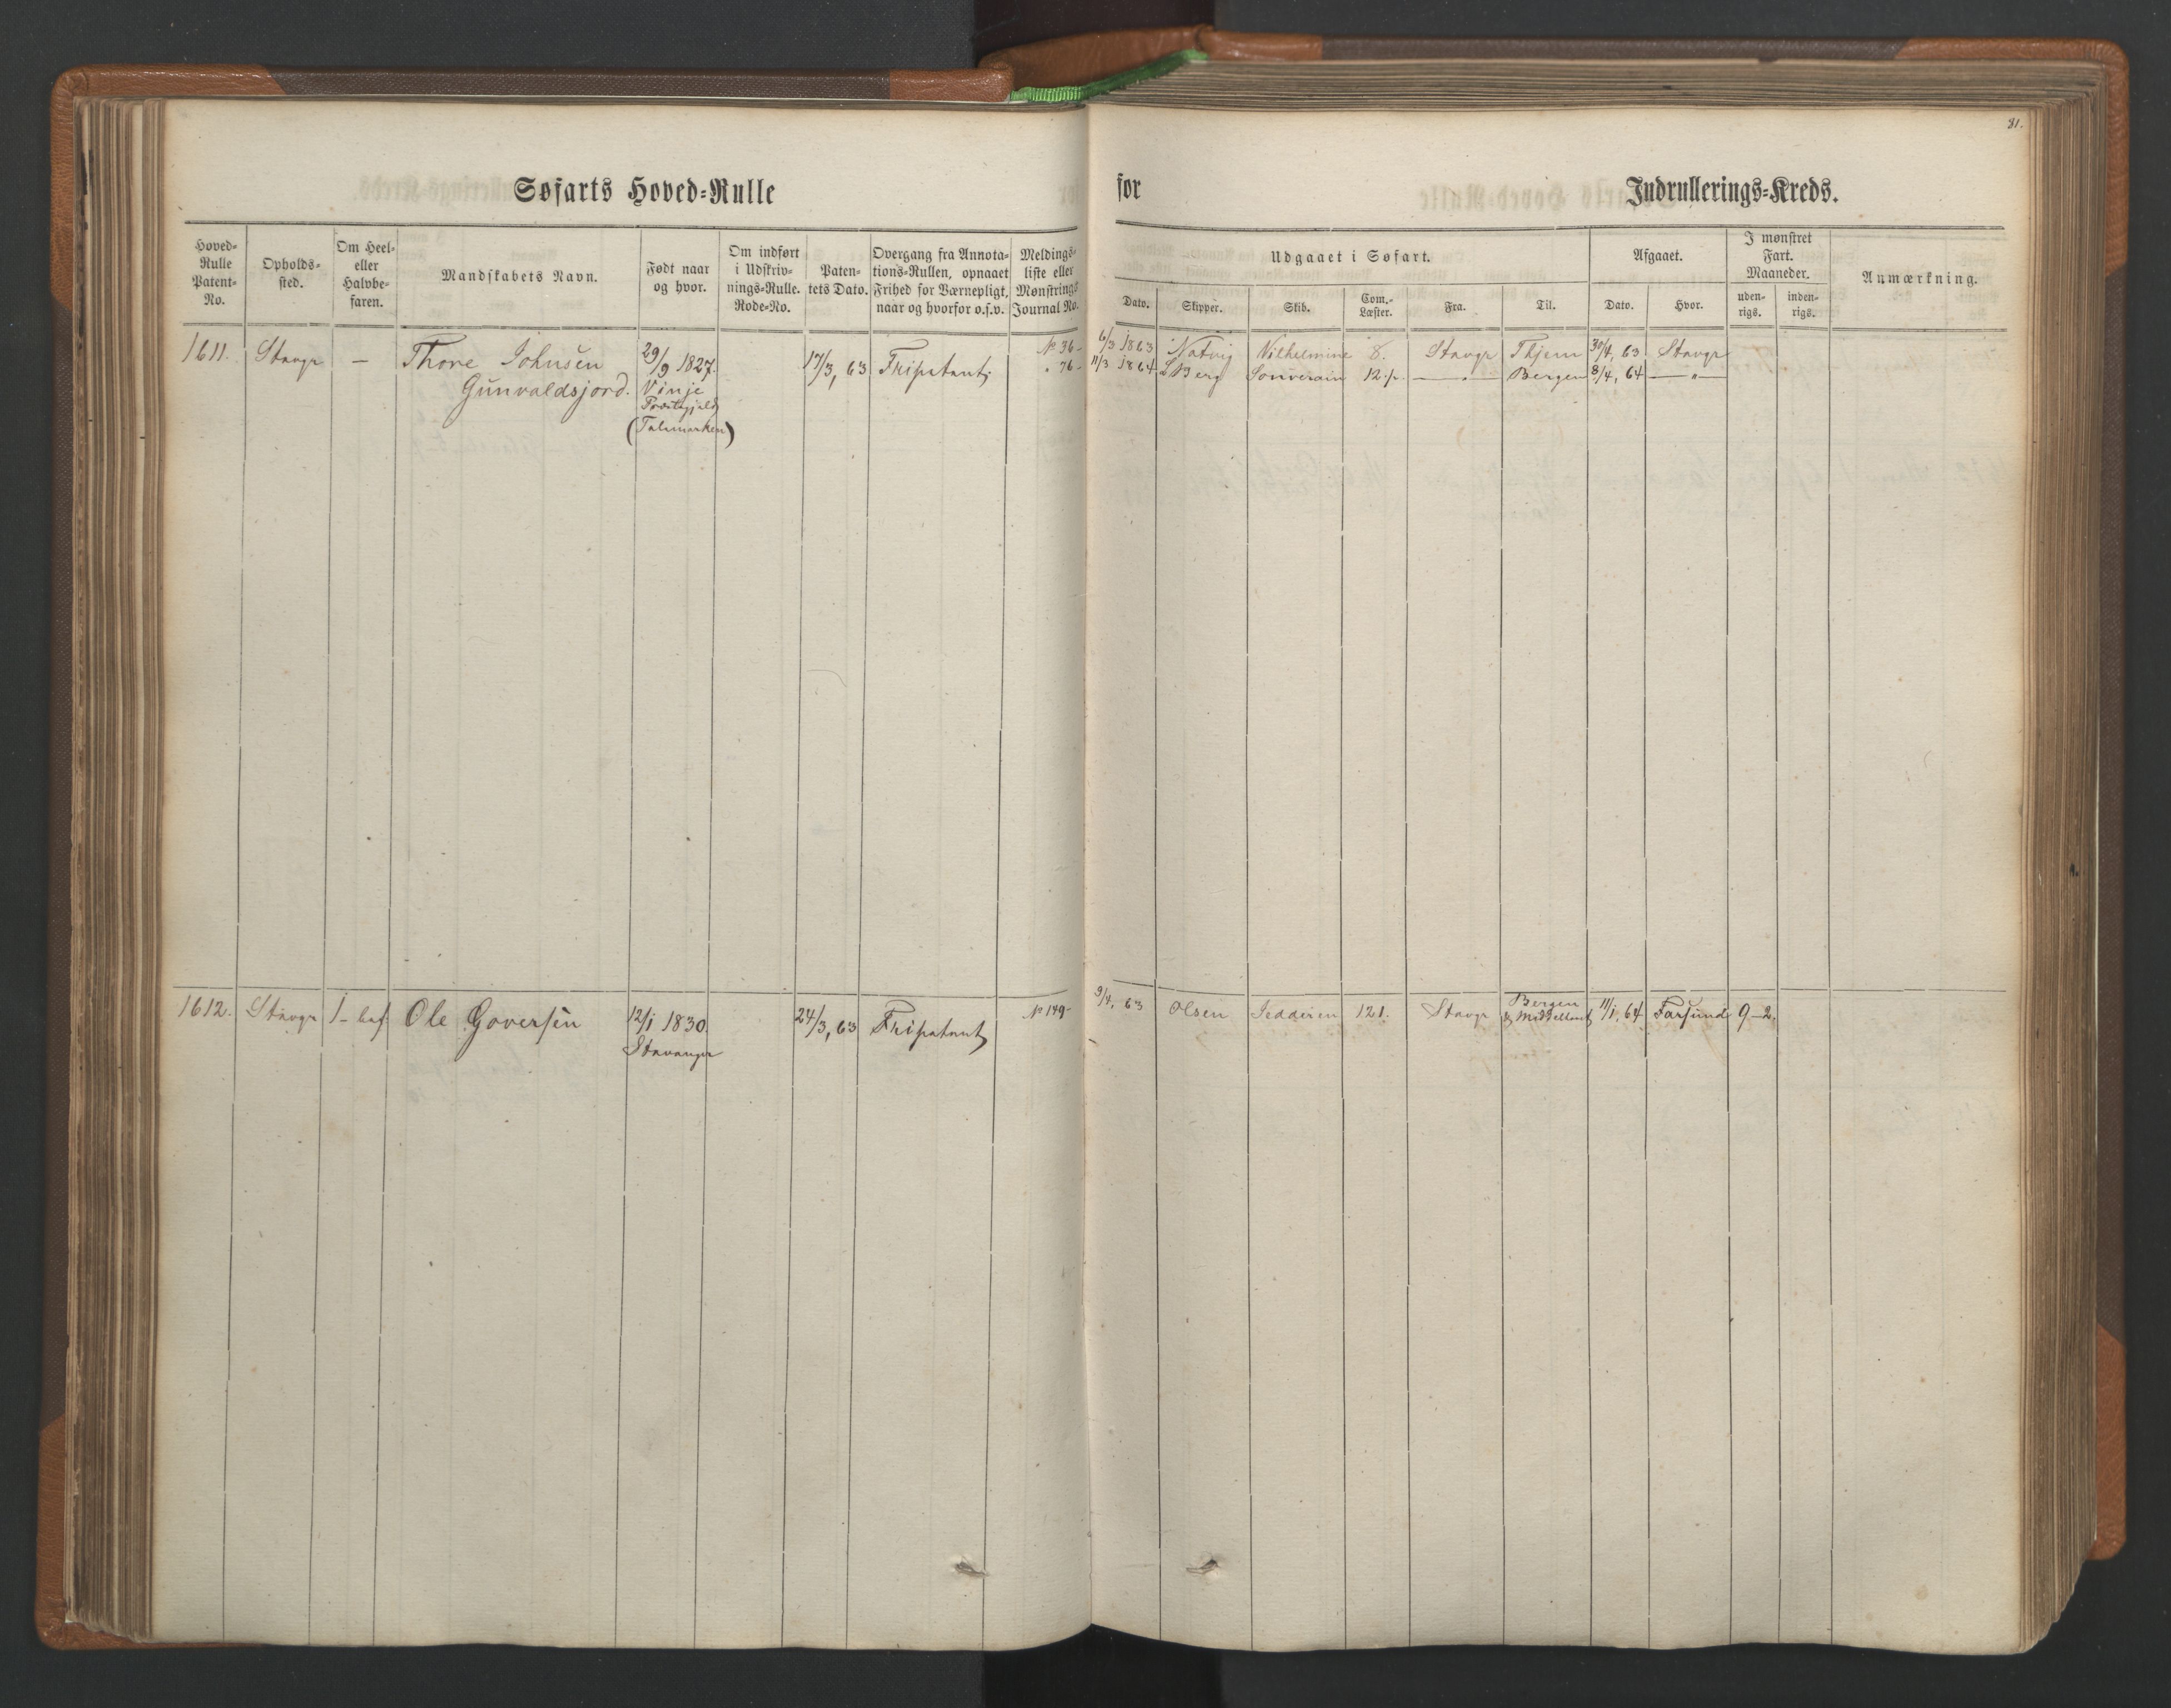 81.
Søfarts Hoved-Rulle for Indrullerings-Kreds.
Hoved-Rulle Patent-No.
Opholds-sted.
Om Heel- eller Halvbe-faren.
Mandskabets Navn.
Født naar og hvor.
Om indført i Udskriv-nings-Rulle. Rode-No.
Paten-tets Dato.
Overgang fra Annota-tions-Rullen, opnaaet Frihed for Værnepligt, naar og hvorfor o.s.v.
Meldings-liste eller Mønstrings Journal No.
Udgaaet i Søfart.
Dato. Skipper. Skib. Com.-Læster. Fra. Til.
Afgaaet.
Dato. Hvor.
I mønstret Fart. Maaneder.
uden-rigs. inden-rigs.
Anmærkning.
1611. Stavgr — Thore Johnsen 29/9 1827. 17/3, 63 Fripatent № 36- 6/3 1863 Natvig Wilhelmine 8. Stavgr Thjem 30/4, 63 Stavgr
Gunvaldsjord. Vinje " 76- 11/3 1864 L Berg Souverain 12 p. — " — Bergen 8/4, 64 — " —
Præstegjeld
(Talemarken)
1612. Stavgr 1- bef Ole Goversen 12/1 1830. 24/3, 63 Fripatent № 149- 9/4, 63 Olsen Jedderen 121. Stavgr Bergen 11/1, 64 Farsund 9-2.
Stavanger & Middelhavet